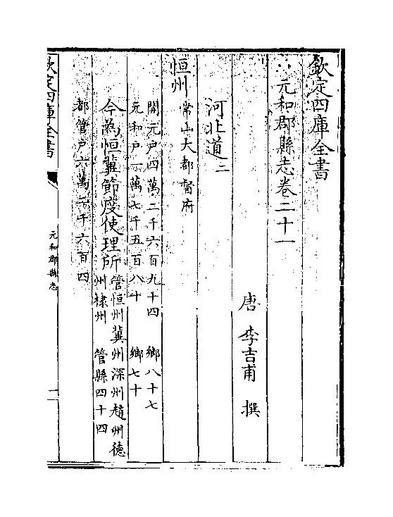 欽定四庫全書
元和郡縣志卷二十一
唐 李吉甫 撰
河北道二
恒州
常山大都督府
開元戶四萬二千六百九十四 鄉八十七
元和戶一萬七千五百八十 鄉七十
今為恒冀節度使理所
管恒州冀州深州趙州德
州棣州 管縣四十四
都管戶六萬 千六百四
欽定四庫全書
元和郡縣志